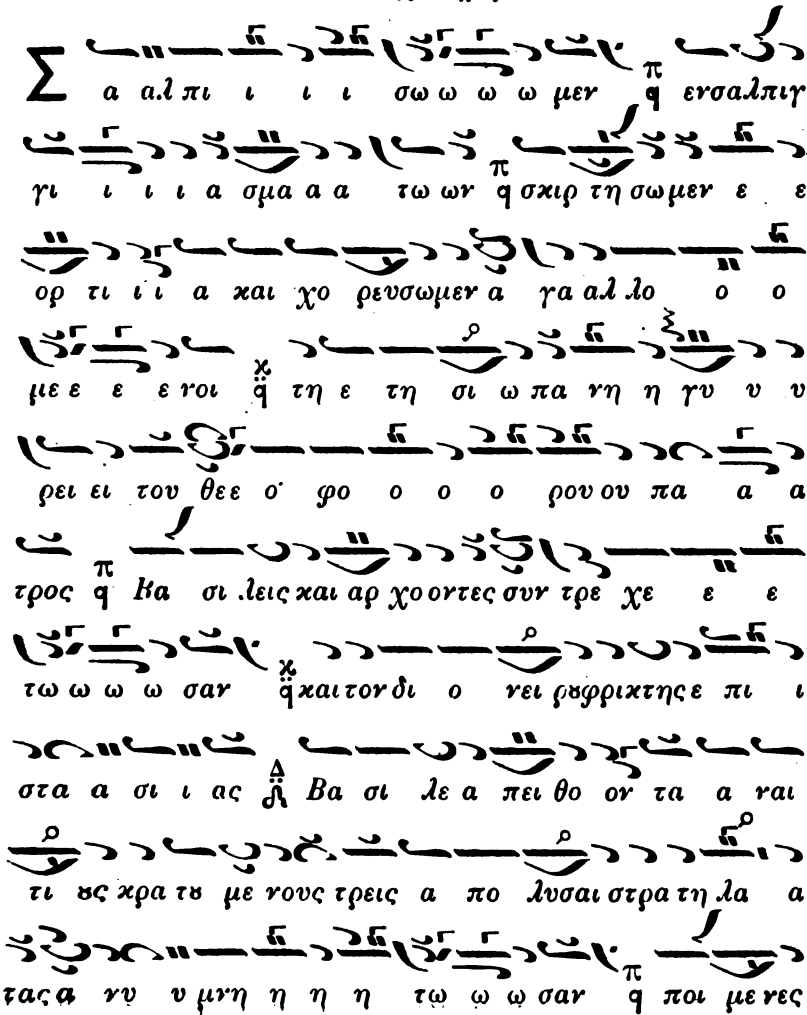 Σ α αλ πι ι ι ι σω ω ω ω μεν π q ενσαλπιγ
γι ι ι ι α σμα α α τω ων π q σκιρ τη σω μεν ε ε
ορ τι ι ι α και χο ρευσωμεν α γα αλ λο ο ο
με ε ε ε νοι κ q τη ε τη σι ω πα νη η γυ υ υ
ρει ει του θε ε ο φο ο ο ο ρου ου πα α α
τρος π q Βα σι λεις και αρ χο οντες συν τρε χε ε ε
τω ω ω ω σαν κ q και τον δι ο νει ρου φρικτης ε πι ι
στα α σι ι ας Δ Βα σι λε α πει θο ον τα α ναι
τι ȣς κρα τȣ με νους τρεις α πο λυσαι στρα τη λα α
τας α νυ υ μνη η η η τω ω ω σαν π q ποι με νες